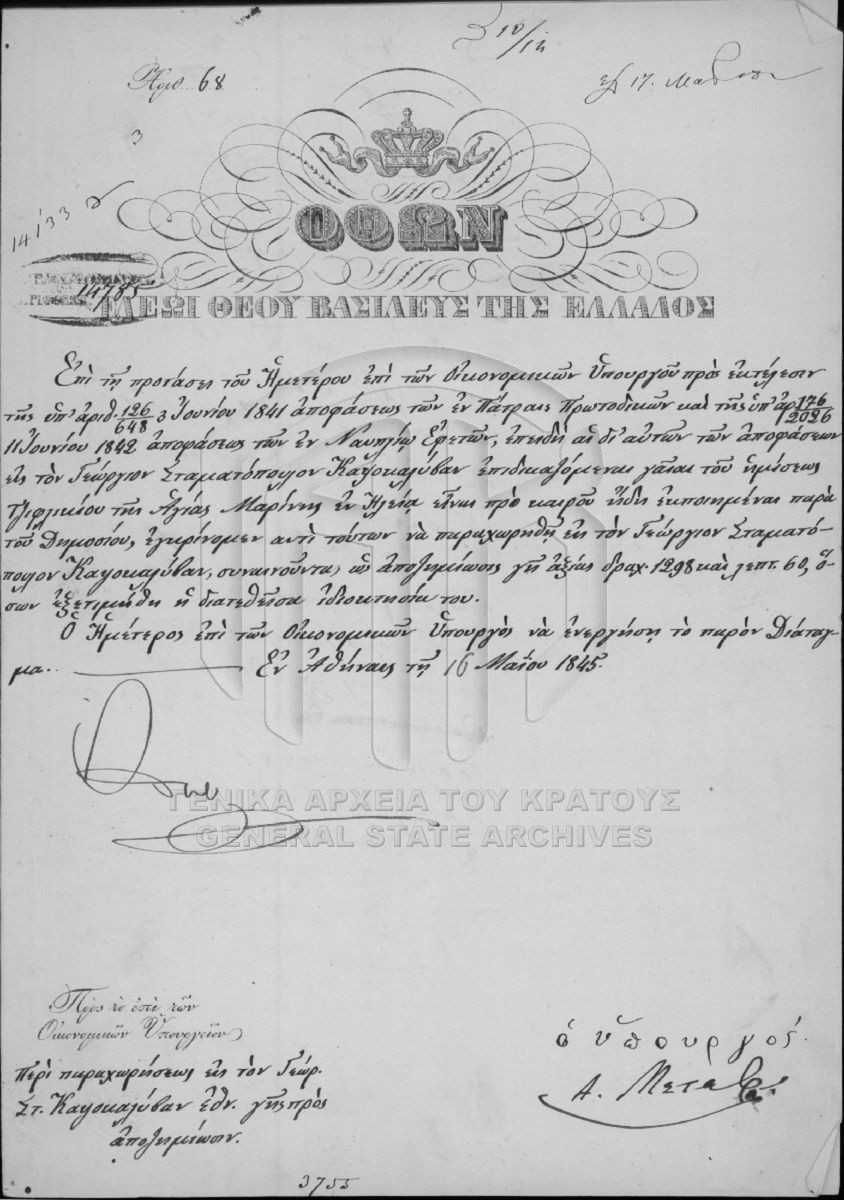 10/12
Ἀριθ. 68
3
14133
14785
ΟΘΩΝ
ΕΛΕΩι ΘΕΟΥ ΒΑΣΙΛΕΥΣ ΤΗΣ ΕΛΛΑΔΟΣ
Ἐπὶ τῇ προτάσει τοῦ Ἡμετέρου ἐπὶ τῶν Οἰκονομικῶν Ὑπουργοῦ πρὸς ἐκτέλεσιν
τῆς ὑπ' ἀριθ. 126/648 3 Ἰουνίου 1841 ἀποφάσεως τῶν ἐν Πάτραις Πρωτοδικῶν καὶ τῆς ὑπ' ἀρ. 176/2026
11 Ἰουνίου 1842 ἀποφάσεως τῶν ἐν Ναυπλίῳ Ἐφετῶν, ἐπειδὴ αἱ δι' αὐτῶν τῶν ἀποφάσεων
εἰς τὸν Γεώργιον Σταματόπουλον Καψοκαλύβαν ἐπιδικαζόμεναι γαῖαι τοῦ ἡμίσεως
τζιφλικίου τῆς Ἁγίας Μαρίνης ἐν Ἠλείᾳ εἶναι πρὸ καιροῦ ἤδη ἐκποιημέναι παρὰ
τοῦ Δημοσίου, ἐγκρίνομεν ἀντὶ τούτων νὰ παραχωρηθῇ εἰς τὸν Γεώργιον Σταματό-
πουλον Καψοκαλύβαν, συναινοῦντα, ὡς ἀποζημίωσις γῆ ἀξίας δραχ. 1298 καὶ λεπτ. 60, ὅ-
σων ἐξετιμήθη ἡ διατεθεῖσα ἰδιοκτησία του.
Ὁ Ἡμέτερος ἐπὶ τῶν Οἰκονομικῶν Ὑπουργὸς νὰ ἐνεργήσῃ τὸ παρὸν Διάταγ-
μα. Ἐν Ἀθήναις τῇ 16 Μαΐου 1845.
Ὄθων
ΓΕΝΙΚΑ ΑΡΧΕΙΑ ΤΟΥ ΚΡΑΤΟΥΣ
GENERAL STATE ARCHIVES
Πρὸς τὸ ἐπὶ τῶν
Οἰκονομικῶν Ὑπουργεῖον
Περὶ παραχωρήσεως εἰς τὸν Γεώρ.
Στ. Καψοκαλύβαν ἐθν. γῆς πρὸς
ἀποζημίωσιν.
ὁ ὑπουργός.
Α. Μεταξᾶ
3755